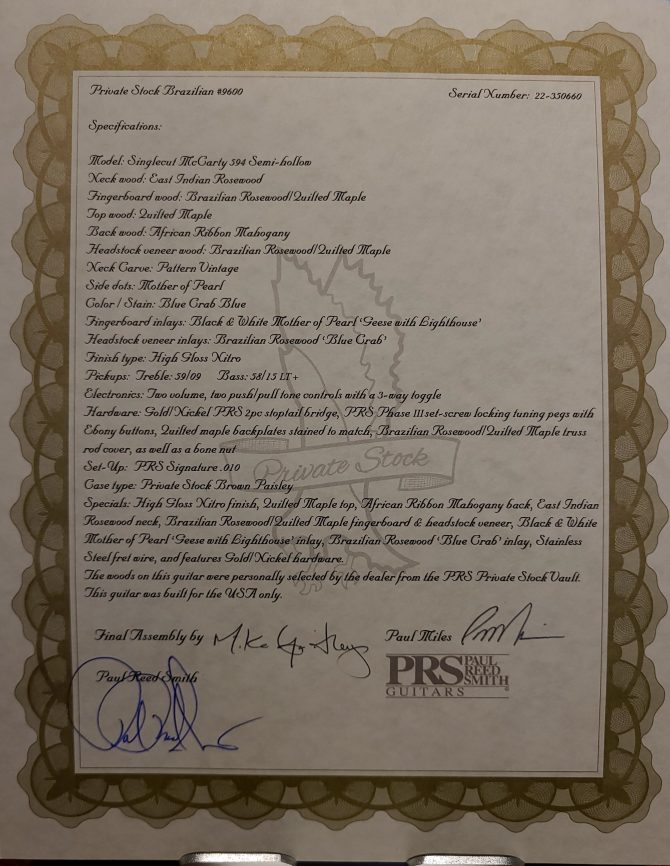 Private Stock Brazilian #9600 Serial Number: 22-350660
Specifications:
Model: Singlecut McCarty 594 Semi-hollow
Neck wood: East Indian Rosewood
Fingerboard wood: Brazilian Rosewood/Quilted Maple
Top wood: Quilted Maple
Back wood: African Ribbon Mahogany
Headstock veneer wood: Brazilian Rosewood/Quilted Maple
Neck Carve: Pattern Vintage
Side dots: Mother of Pearl
Color / Stain: Blue Crab Blue
Fingerboard inlays: Black & White Mother of Pearl 'Geese with Lighthouse'
Headstock veneer inlays: Brazilian Rosewood 'Blue Crab'
Finish type: High Gloss Nitro
Pickups: Treble: 59/09 Bass: 58/15 LT+
Electronics: Two volume, two push/pull tone controls with a 3-way toggle
Hardware: Gold/Nickel PRS 2pc stoptail bridge, PRS Phase III set-screw locking tuning pegs with
Ebony buttons, Quilted maple backplates stained to match, Brazilian Rosewood/Quilted Maple truss
rod cover, as well as a bone nut
Set-Up: PRS Signature .010
Private Stock
Case type: Private Stock Brown Paisley
Specials: High Gloss Nitro finish, Quilted Maple top, African Ribbon Mahogany back, East Indian
Rosewood neck, Brazilian Rosewood/Quilted Maple fingerboard & headstock veneer, Black & White
Mother of Pearl 'Geese with Lighthouse' inlay, Brazilian Rosewood 'Blue Crab' inlay, Stainless
Steel fret wire, and features Gold/Nickel hardware.
The woods on this guitar were personally selected by the dealer from the PRS Private Stock Vault.
This guitar was built for the USA only.
Final Assembly by Paul Miles
Paul Reed Smith
PRS PAUL REED SMITH
GUITARS